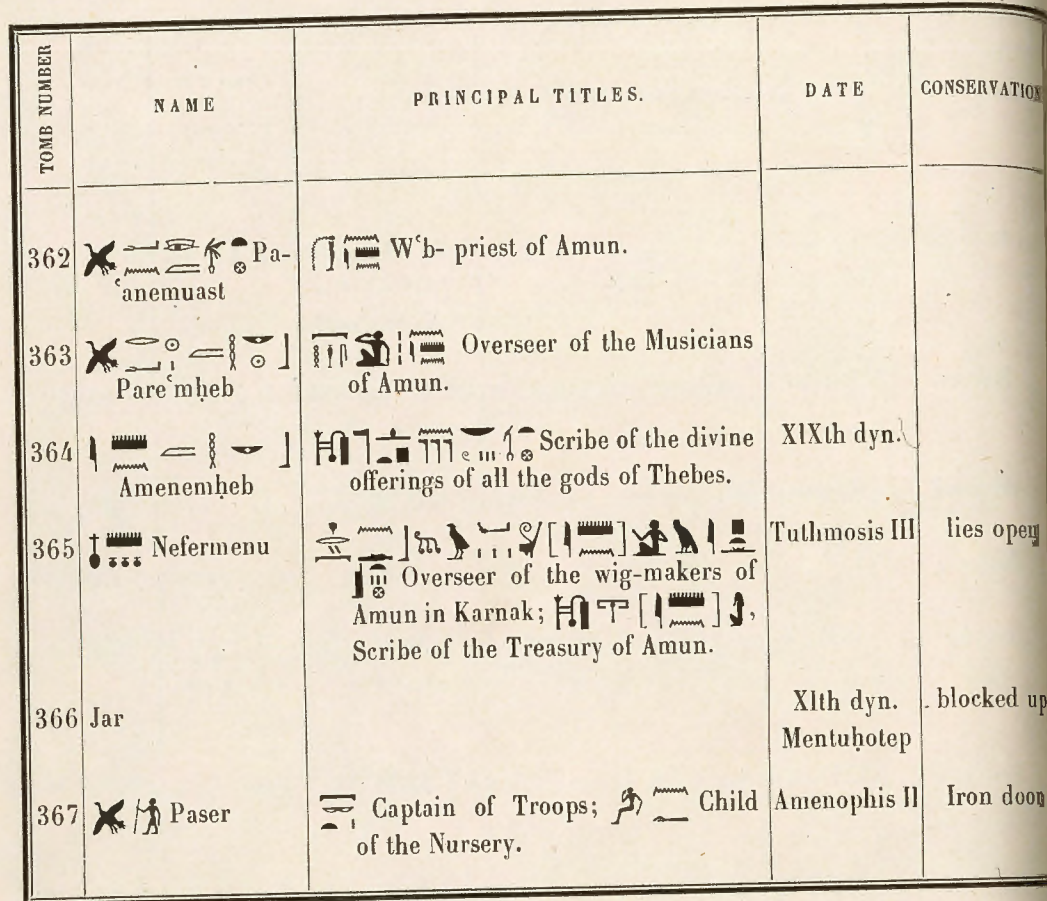 TOMB NUMBER
NAME
PRINCIPAL TITLES.
DATE
CONSERVATION
362 Pa-
ꜥanemuast
Wꜥb- priest of Amun.
363
Pareꜥmḥeb
Overseer of the Musicians
of Amun.
364
Amenemḥeb
Scribe of the divine
offerings of all the gods of Thebes.
XIXth dyn.
365 Nefermenu
Overseer of the wig-makers of
Amun in Karnak;
Scribe of the Treasury of Amun.
Tuthmosis III
lies open
366 Jar
XIth dyn.
Mentuḥotep
blocked up
367 Paser
Captain of Troops; Child
of the Nursery.
Amenophis II
Iron door